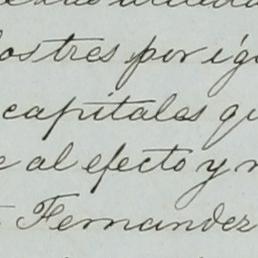 los tres por igu
capitales qu
al efecto y
Fernandez